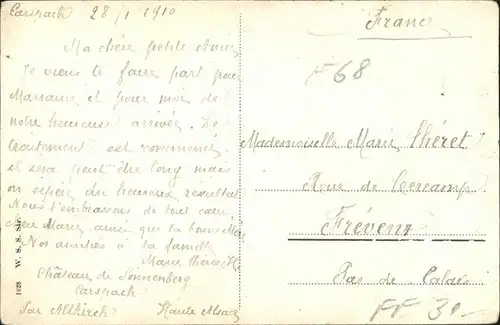 Carspach 28/1 1910
France
Ma chère petite Amie
Je viens te faire part pour
Marraine et pour moi de
notre heureuse arrivée. Le
traitement est commencé
il sera peut être long mais
on espère du heureux resultat
Nous t'embrassons de tout cœur
chère Marie, ainsi que ta bonne Mère
Nos amitiés à ta famille
Marie Thérèse H.
Château de Sonnenberg
Carspach
Par Altkirch Haute Alsace
F68
Mademoiselle Marie Théret
Rue de Cercamp
Frévent
Pas de Calais
FF 30-
1028 W. S. S. Str.